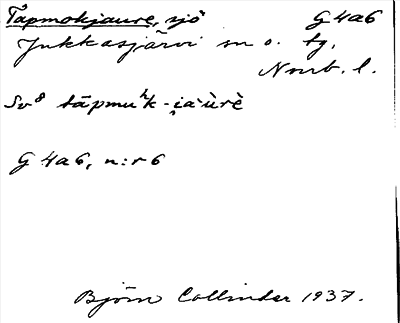 Tapmokjaure, sjö G 4a6
Jukkasjärvi sn o. tg,
Nrrb. l.
Sv⁸ tāpmuʰk-i̯a͕ùrè
G 4a6, n:r 6
Björn Collinder 1937.